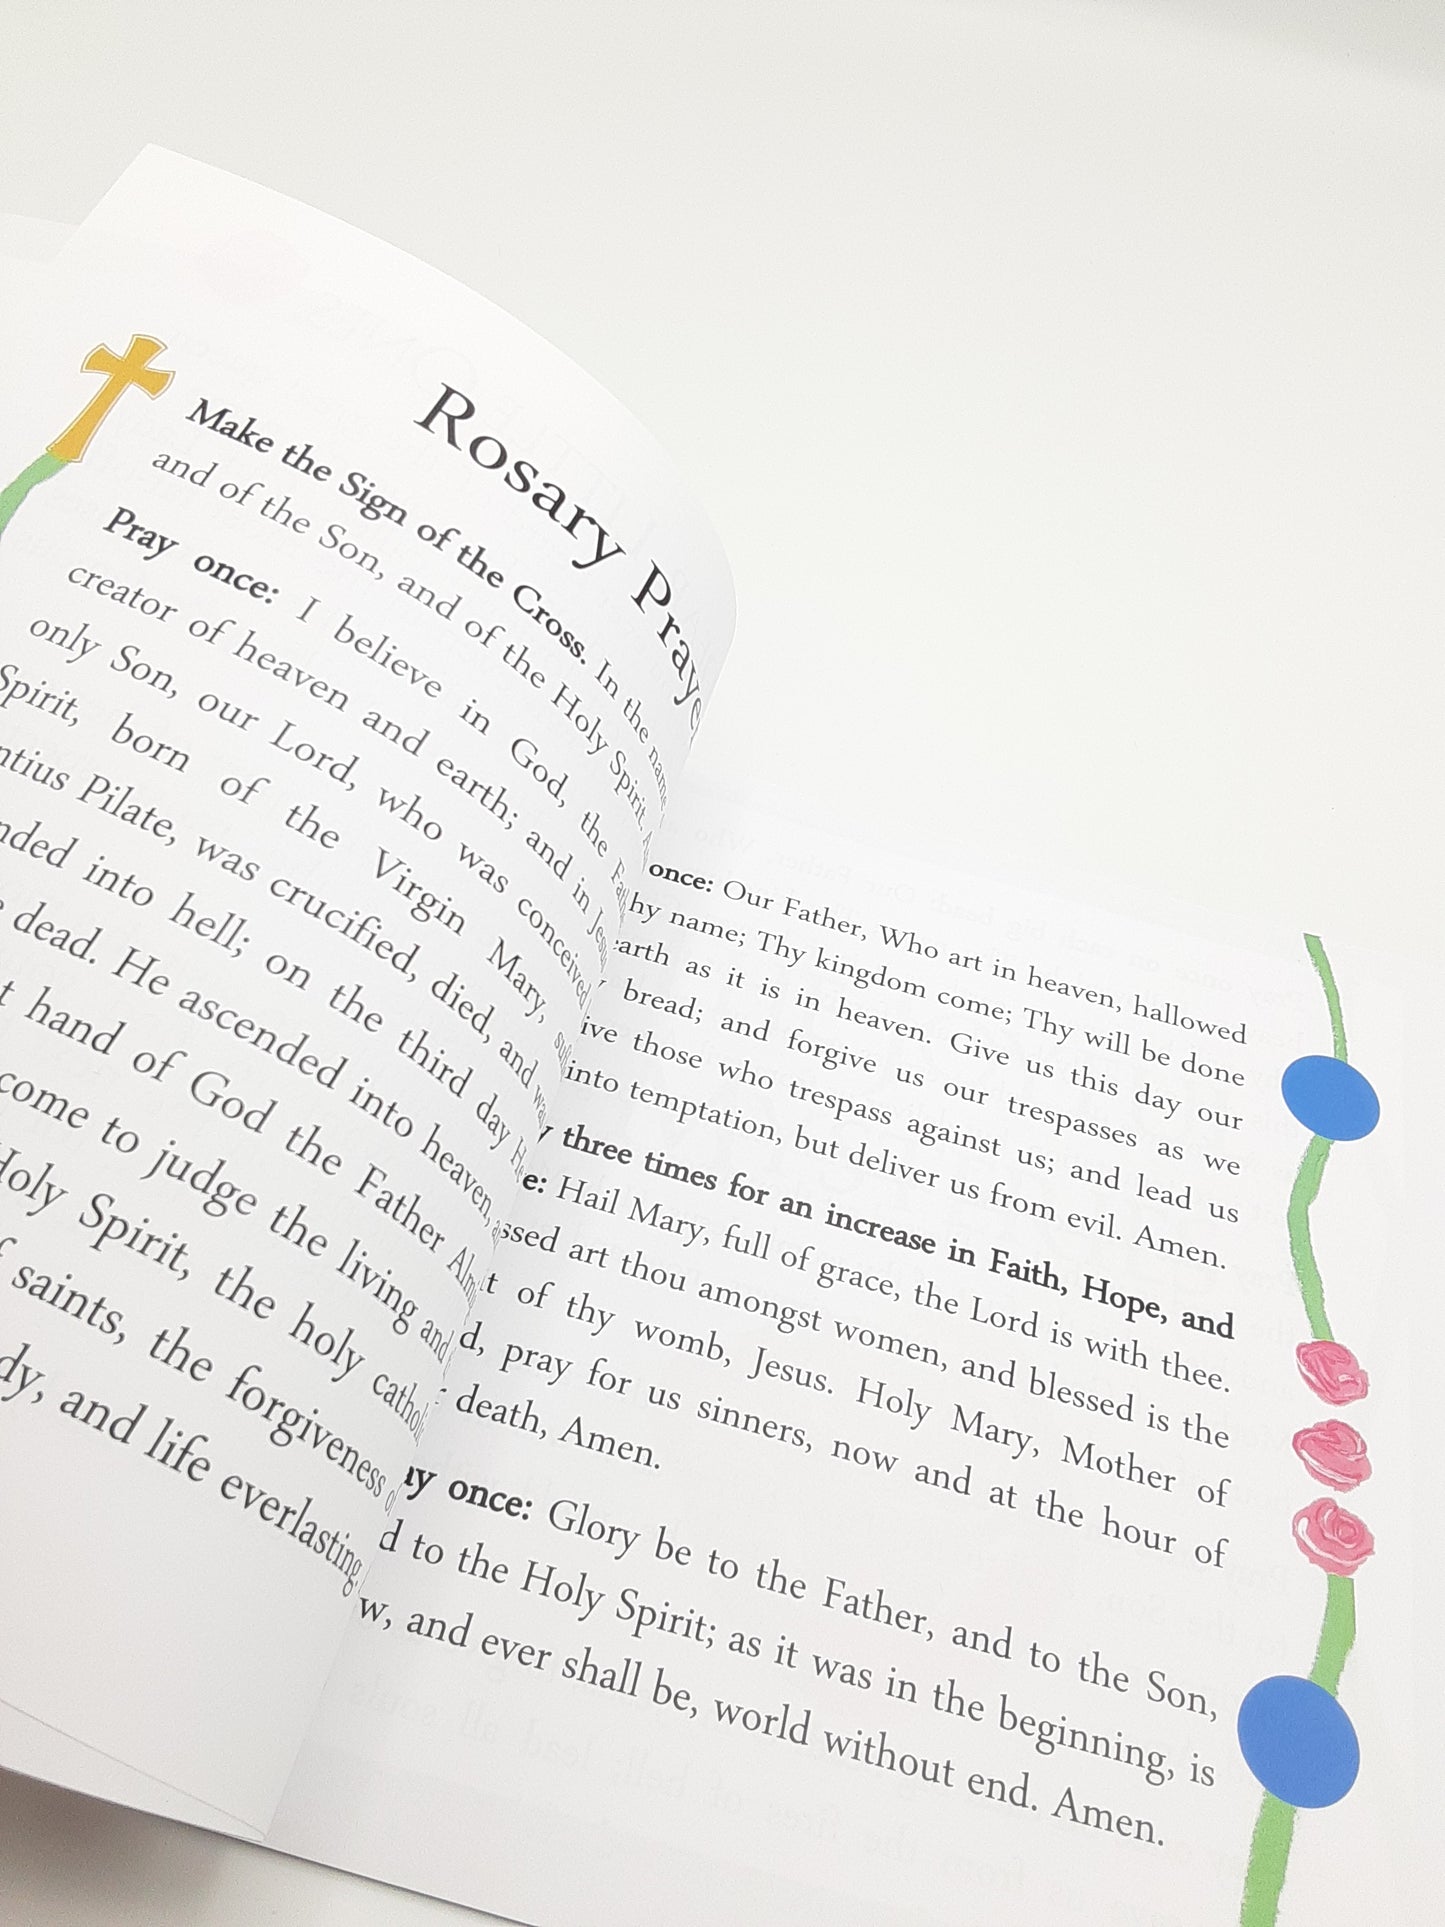 Rosary
Make the Sign of the Cross. In the name
and of the Son, and of the Holy Spirit.
Pray once: I believe in God, the
creator of heaven and earth; and in
only Son, our Lord, who was conceived
Spirit, born of the Virgin Mary,
Pilate, was crucified, died, and
into hell; on the third day
dead. He ascended into heaven,
hand of God the Father
come to judge the living and
Holy Spirit, the holy
saints, the forgiveness
and life everlasting
once: Our Father, Who art in heaven, hallowed
hy name; Thy kingdom come; Thy will be done
arth as it is in heaven. Give us this day our
bread; and forgive us our trespasses as we
ive those who trespass against us; and lead us
into temptation, but deliver us from evil. Amen.
three times for an increase in Faith, Hope, and
e: Hail Mary, full of grace, the Lord is with thee.
ssed art thou amongst women, and blessed is the
t of thy womb, Jesus. Holy Mary, Mother of
d, pray for us sinners, now and at the hour of
death, Amen.
ay once: Glory be to the Father, and to the Son,
d to the Holy Spirit; as it was in the beginning, is
w, and ever shall be, world without end. Amen.